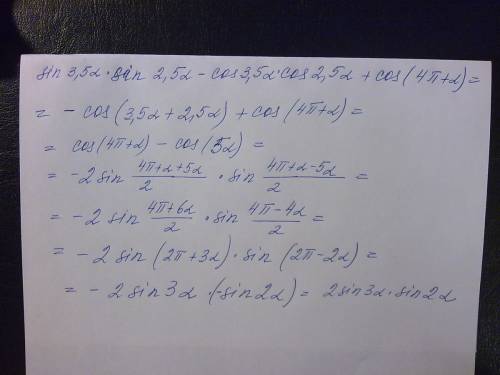 sin 3,5α · sin 2,5α - cos3,5α·cos2,5α + cos(4π+α)=
= - cos(3,5α+2,5α) + cos(4π+α)=
= cos(4π+α) - cos(5α) =
= -2 sin (4π+α+5α)/2 · sin (4π+α-5α)/2 =
= -2 sin (4π+6α)/2 · sin (4π-4α)/2 =
= -2 sin (2π+3α) · sin (2π-2α) =
= - 2 sin3α ·(-sin2α) = 2sin3α·sin2α